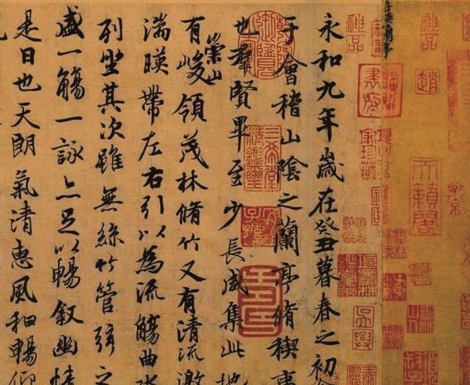 永和九年歲在癸丑暮春之初
于會稽山陰之蘭亭脩稧事
也羣賢畢至少長咸集此地
有崇山峻領茂林脩竹又有清流激
湍暎帶左右引以為流觴曲水
列坐其次雖無絲竹管弦之
盛一觴一詠亦足以暢敘幽情
是日也天朗氣清惠風和暢仰
趙
天籟閣